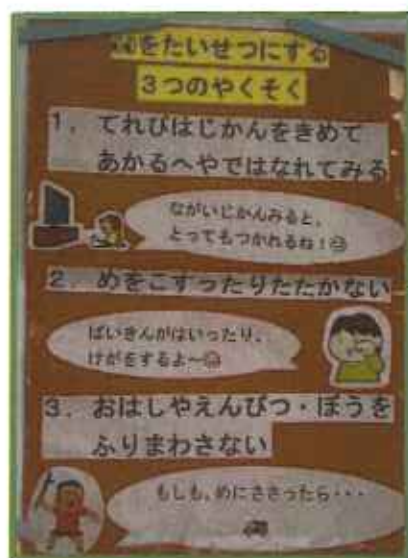 をたいせつにする
3つのやくそく
1．てれびはじかんをきめて
あかるへやではなれてみる
ながいじかんみると、
とってもつかれるね！
2．めをこすったりたたかない
ばいきんがはいったり、
けがをするよ～
3．おはしやえんぴつ・ぼうを
ふりまわさない
もしも、めにささったら・・・